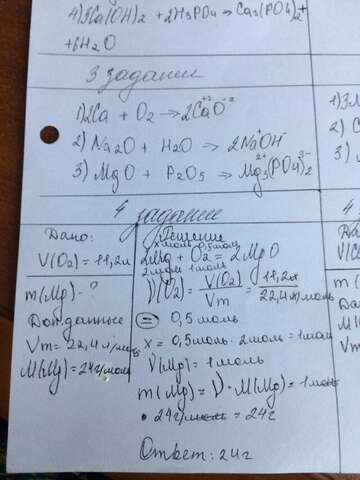 4) 3Ca(OH)2 + 2H3PO4 → Ca3(PO4)2 +
+6H2O
3 задание
1) 2Ca + O2 → 2Ca+2O-2
2) Na2O + H2O → 2Na+OH-
3) MgO + P2O5 → Mg3 2+(PO4)2 3-
4 задание
Дано:
V(O2) = 11,2л
m(Mg) - ?
Доп.данные
Vm = 22,4 л/моль
M(Mg) = 24г/моль
Решение
x моль 0,5моль
2Mg + O2 = 2MgO
2моль 1моль
ν(O2) = V(O2)/Vm = 11,2л/22,4л/моль
= 0,5 моль
x = 0,5моль · 2моль = 1моль
ν(Mg) = 1моль
m(Mg) = ν · M(Mg) = 1моль
· 24г/моль = 24г
Ответ: 24г